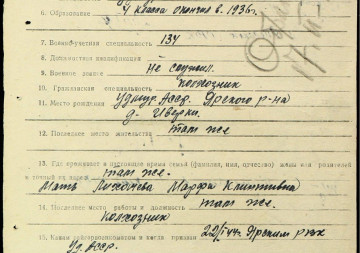 6. Образование 4 класса окончил в 1936 г.
7. Военно-учетная специальность 134
8. Дополнительная квалификация
9. Военное звание Не служил.
10. Гражданская специальность Колхозник
11. Место рождения Удмур. Асср. Ярского р-на
д. Иверки.
12. Последнее место жительства там же
13. Где проживает в настоящее время семья (фамилия, имя, отчество) жены или родителей
и точный их адрес там же.
Мать Марфа
14. Последнее место работы и должность там же
Колхозник
15. Каким райвоенкоматом и когда призван 22/I 44 г. Ярским рвк
Уд. Асср.